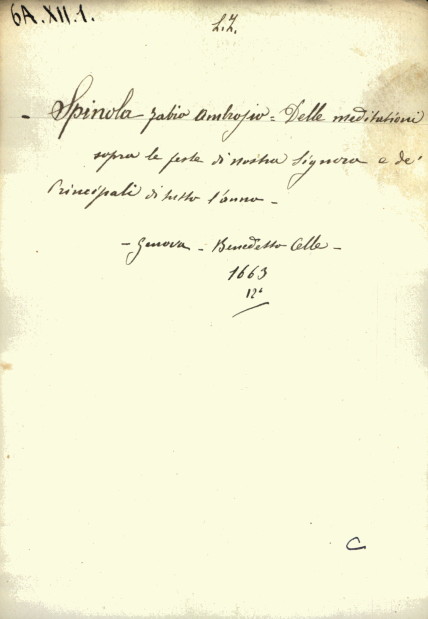 6A.XII.1.
L.Z.
- Spinola Fabio Ambrosio = Delle meditationi
sopra le feste di nostra Signora e de'
Principali di tutto l'anno -
- Genova - Benedetto Celle -
1663
12°
C